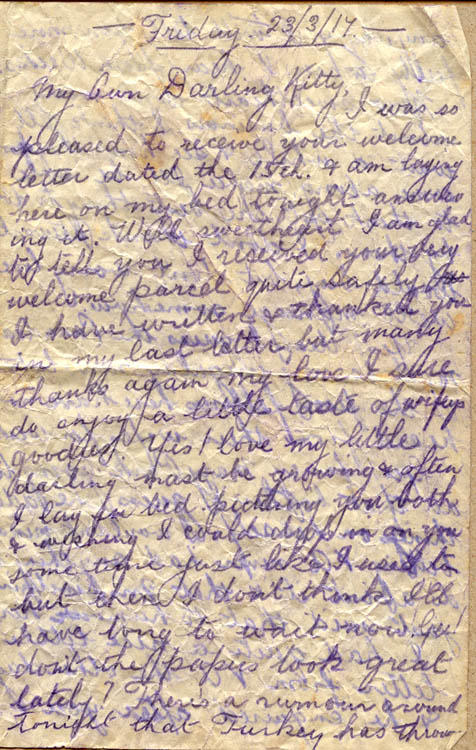 — Friday. 23/3/17. —
My Own Darling Kitty,
I was so
pleased to receive your welcome
letter dated the 15th. & am laying
here on my bed tonight answer
ing it. Well sweetheart I am glad
to tell you I received your very
welcome parcel quite safely
I have written & thanked you
in my last letter but many
thanks again my love I sure
do enjoy a little taste of wifeys
goodies. Yes love my little
darling must be growing & often
I lay in bed picturing you both
& wishing I could drop in on you
some time just like I used to
but then I don't think Ill
have long to wait now. Gee!
don't the papers look great
lately? There's a rumour around
tonight that Turkey has throw